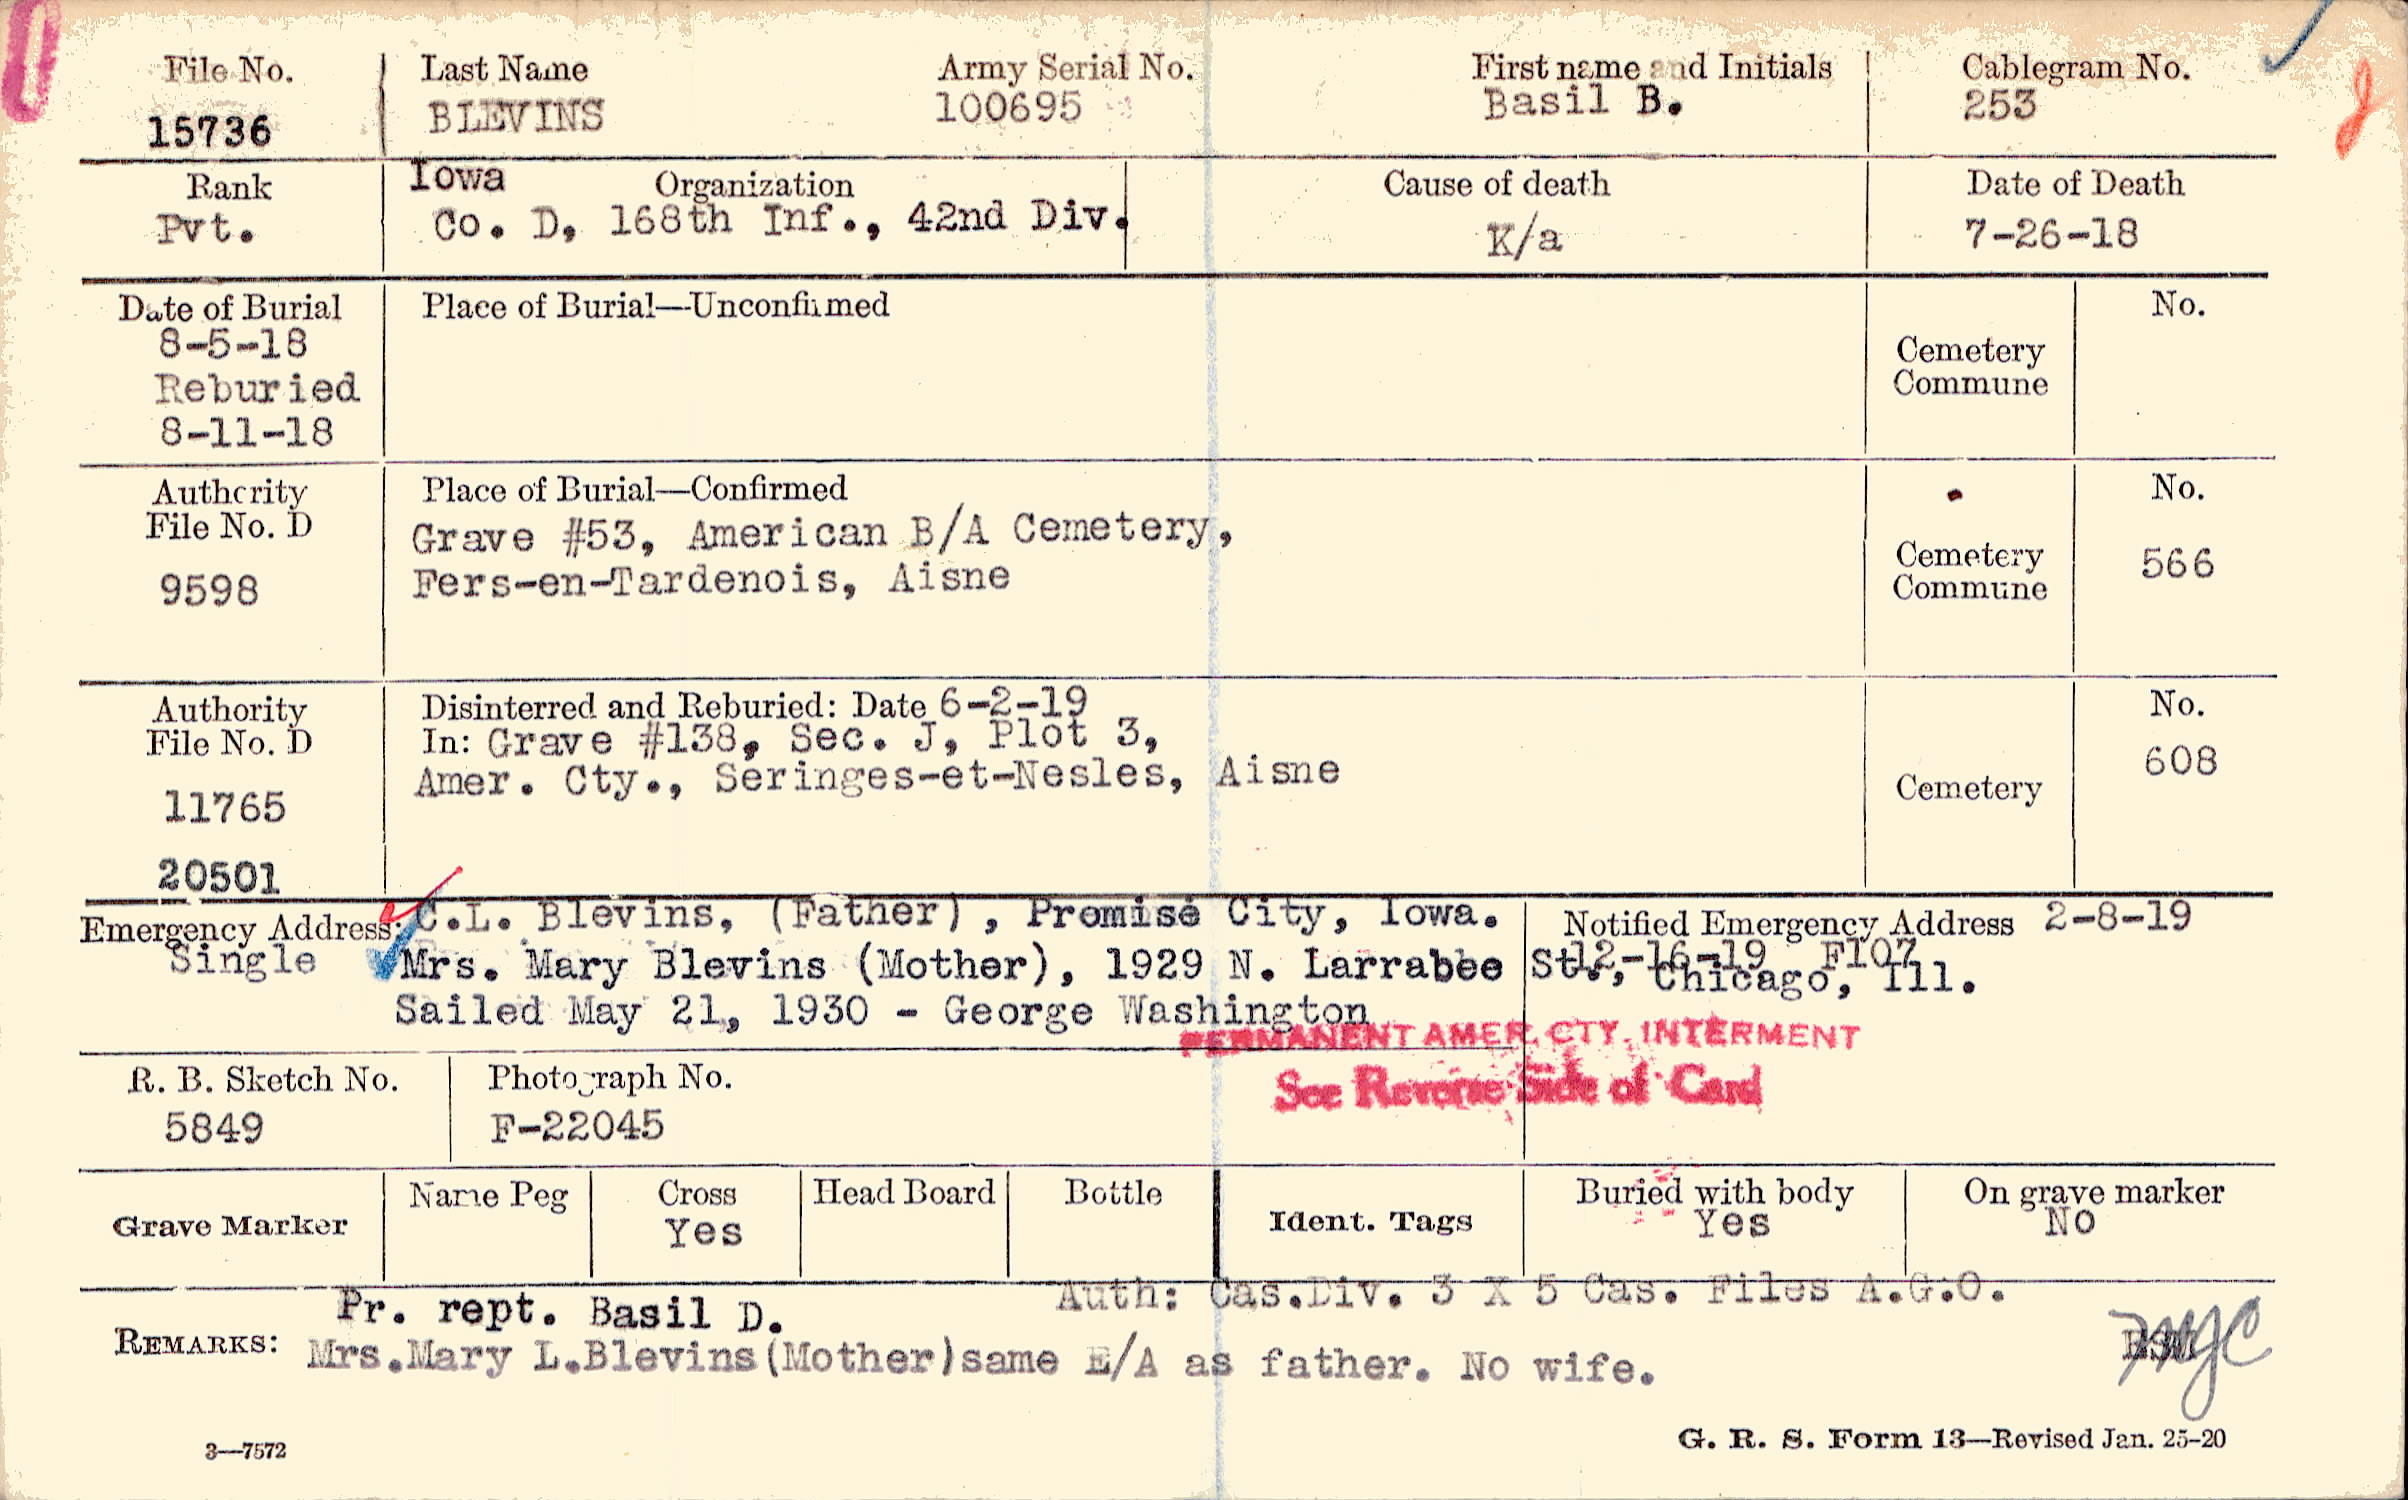 File No. Last Name Army Serial No. First name and Initials Cablegram No.
15736 BLEVINS 100695 Basil B. 253
Rank Iowa Organization Cause of death Date of Death
Pvt. Co. D, 168th Inf., 42nd Div. K/a 7-26-18
Date of Burial Place of Burial—Unconfirmed No.
8-5-18
Reburied
8-11-18
Cemetery
Commune
Authority Place of Burial—Confirmed No.
File No. D Grave #53, American B/A Cemetery,
9598 Fers-en-Tardenois, Aisne
Cemetery 566
Commune
Authority Disinterred and Reburied: Date 6-2-19 No.
File No. D In: Grave #138, Sec. J, Plot 3,
Amer. Cty., Seringes-et-Nesles, Aisne 608
11765 Cemetery
20501
Emergency Address: C.L. Blevins, (Father), Promise City, Iowa. Notified Emergency Address 2-8-19
12-16-19 F107
Single Mrs. Mary Blevins (Mother), 1929 N. Larrabee St., Chicago, Ill.
Sailed May 21, 1930 - George Washington
PERMANENT AMER. CTY. INTERMENT
See Reverse Side of Card
R. B. Sketch No. Photograph No.
5849 F-22045
Grave Marker Name Peg Cross Head Board Bottle Ident. Tags Buried with body On grave marker
Yes Yes No
Auth: Cas.Div. 3 X 5 Cas. Files A.G.O.
Pr. rept. Basil D.
REMARKS: Mrs.Mary L.Blevins(Mother)same E/A as father. No wife.
3—7572 G. R. S. Form 13—Revised Jan. 25-20